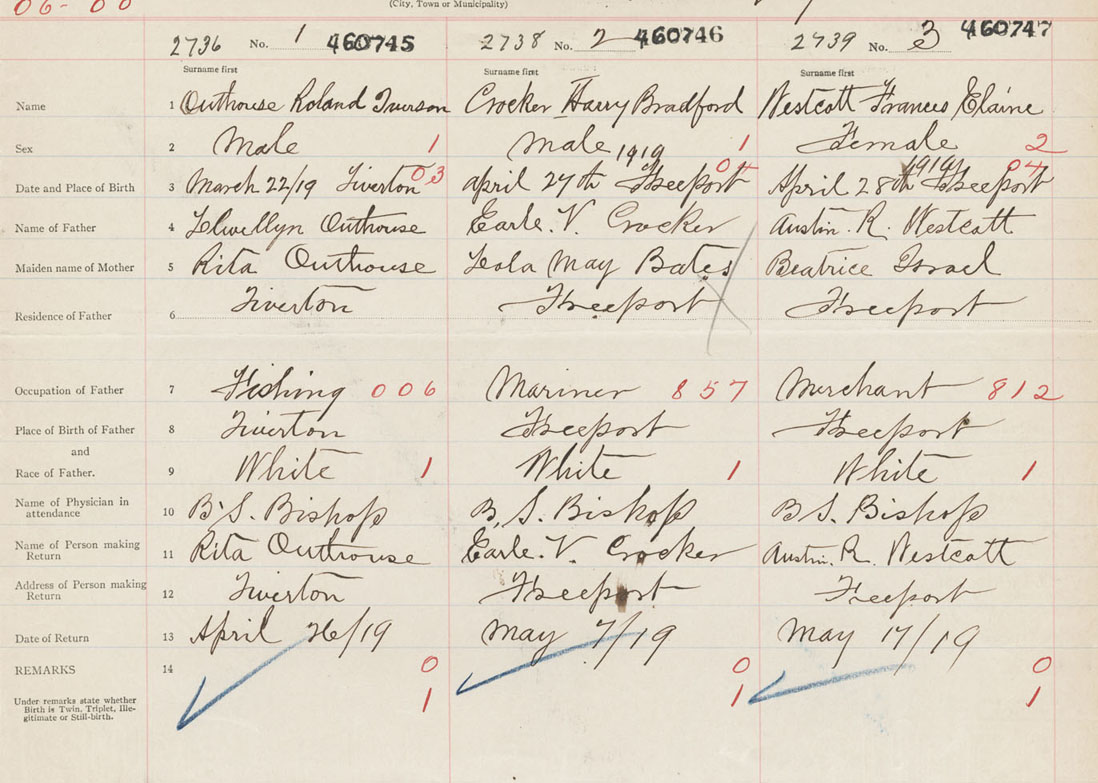 06-00
(City, Town or Municipality)
2736 No. 1 460745 2738 No. 2 460746 2739 No. 3 460747
Surname first Surname first Surname first
Name 1 Outhouse Roland Iverson Crocker Harry Bradford Westcott Frances Elaine
Sex 2 Male 1 Male 1 Female 2
03 1919 04 1919 04
Date and Place of Birth 3 March 22/19 Tiverton April 27th Freeport April 28th Freeport
Name of Father 4 Llwellyn Outhouse Earle. V. Crocker Austin. R. Westcott
Maiden name of Mother 5 Rita Outhouse Leola May Bates Beatrice Israel
Residence of Father 6 Tiverton Freeport Freeport
Occupation of Father 7 Fishing 006 Mariner 857 Merchant 812
Place of Birth of Father 8 Tiverton Freeport Freeport
and
Race of Father. 9 White 1 White 1 White 1
Name of Physician in
attendance 10 B. S. Bishop B. S. Bishop B S. Bishop
Name of Person making
Return 11 Rita Outhouse Earle. V. Crocker Austin. R. Westcott
Address of Person making
Return 12 Tiverton Freeport Freeport
Date of Return 13 April 26/19 May 7/19 May 17/19
REMARKS 14 0 0 0
Under remarks state whether 1 1 1
Birth is Twin, Triplet, Ille-
gitimate or Still-birth.